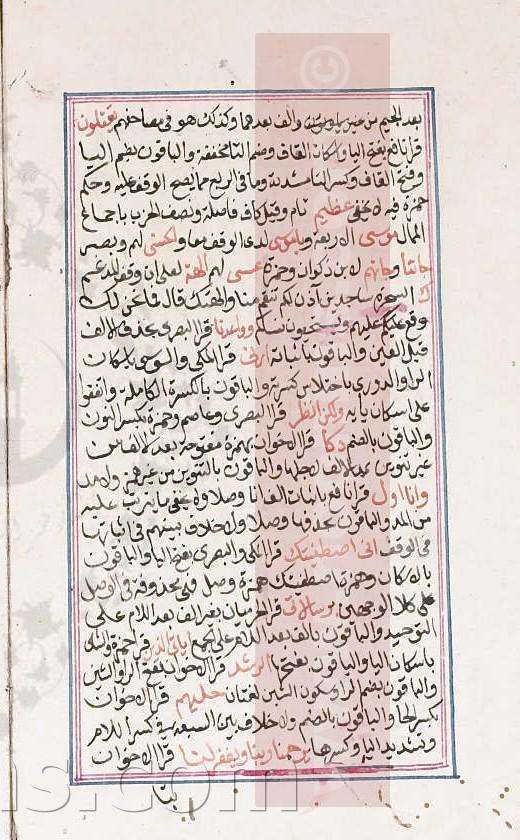 بعد الجيم من غير ياء والف بعدهما وكذلك هو في مصاحفهم يقتلون
قرا نافع بفتح اليا واسكان القاف وضم التا مخففة والباقون بضم اليا
وفتح القاف وكسر التا مشددة وما في الربع مما يصح الوقف عليه وحكم
حمزة فيه لا يخفى عظيم تام وقيل كاف فاصلة ونصف الحزب باجماع
الممال موسى الاربعة ويا موسى لدى الوقف معا والحسنى لهم وبصر
جاتنا وجاتهم لابن ذكوان وحمزة عسى لهم الهة لعلي ان وقف المدغم
ك السحرة ساجدين آذن لكم تنقم منا والهتك قال فما نحن لك
وقع عليهم ويستحيون نساءكم وواعدنا قرا البصري بحذف الالف
قبل العين والباقون باثباتها ارني قرا المكي والسوسي باسكان
الرا والدوري باختلاس كسرة والباقون بالكسرة الكاملة واتفقوا
على اسكان يايه ولكن انظر قرا البصري وعاصم وحمزة بكسر النون
والباقون بالضم دكا قرا الاخوان بهمزة مفتوحة بعد الالف من
غير تنوين تمد الالف لاجلها والباقون بالتنوين من غير همز ولا مد
وانا اول قرا نافع باثبات الف انا وصلا ولا يخفى ما يترتب عليه
من المد والباقون بحذفها وصلا ولا خلاف بينهم في اثباتها
في الوقف اني اصطفيتك قرا المكي والبصري بفتح اليا والباقون
بالاسكان وهمزة اصطفيتك همزة وصل فهي محذوفة في الوصل
على كلا الوجهين برسالاتي قرا الحرميان بغير الف بعد اللام على
التوحيد والباقون بالف بعد اللام على الجمع اياتي الذين قرا حمزة والشامي
باسكان اليا والباقون بفتحها الرشد قرا الاخوان بفتح الرا والشين
والباقون بضم الرا وسكون الشين لغتان حليهم قرا الاخوان
بكسر الحا والباقون بالضم ولا خلاف بين السبعة في كسر اللام
وتشديد اليا وكسرها يرحمنا ربنا ويغفر لنا قرا الاخوان
بتا